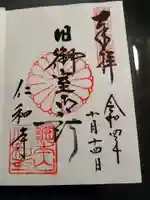 奉拝
令和四年
十月十四日
旧御室御所
仁和寺